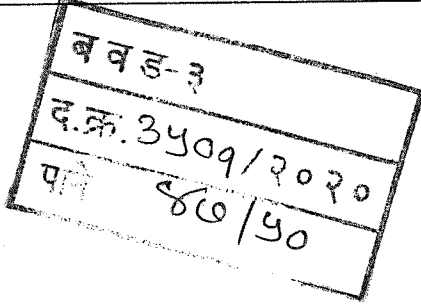 ब व ड-३
द.क्र. ३५०१/२०२०
पाने ४७/५०